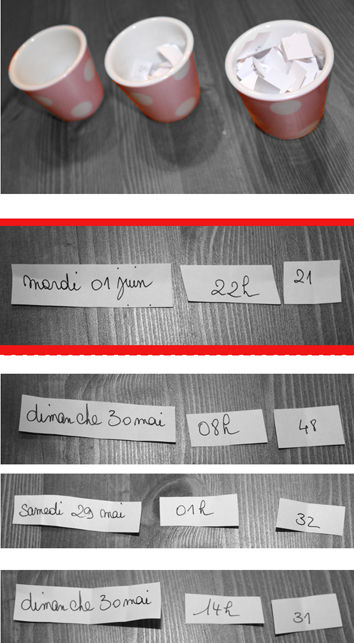 mardi 01 juin 22h 21
dimanche 30 mai 08h 48
samedi 29 mai 01h 32
dimanche 30 mai 14h 31